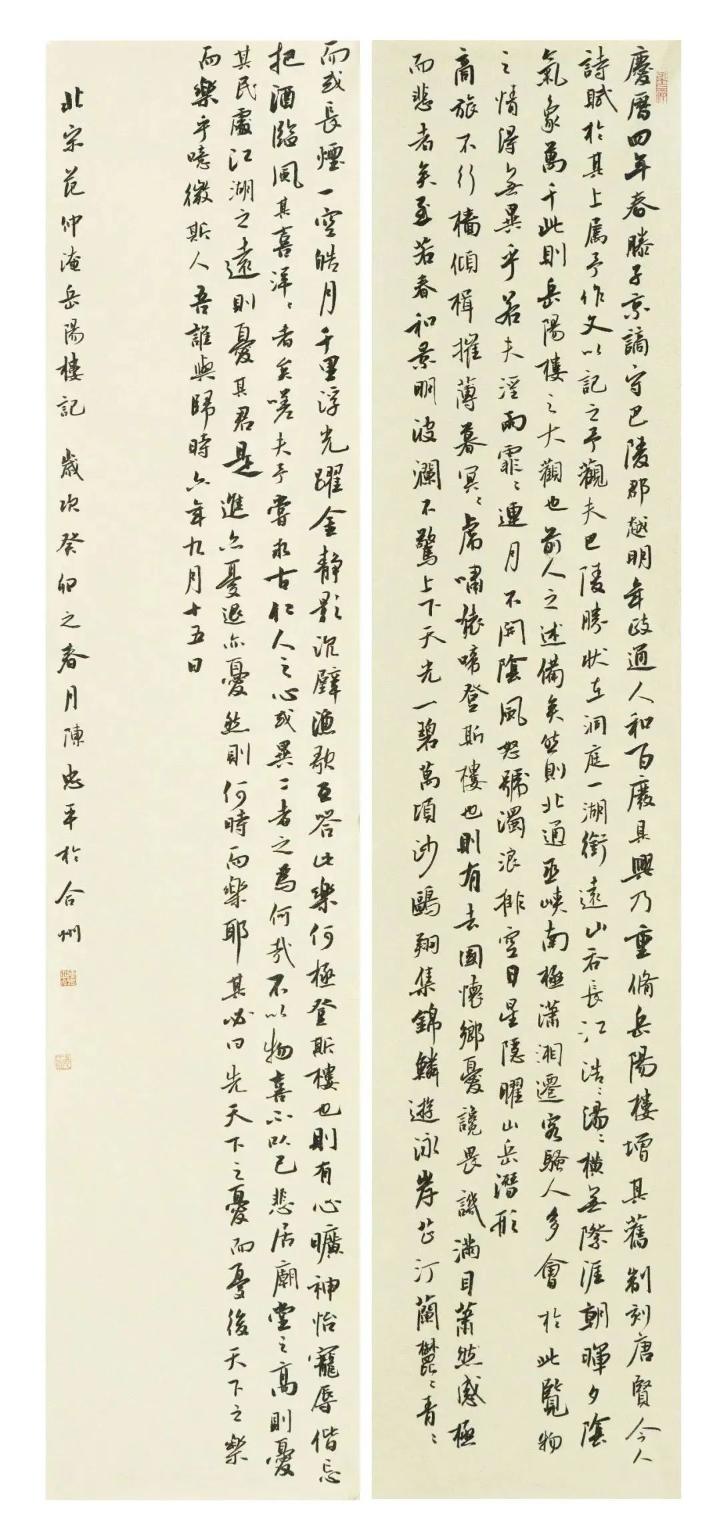 慶曆四年春滕子京謫守巴陵郡越明年政通人和百廢具興乃重脩岳陽樓增其舊制刻唐賢今人
詩賦於其上屬予作文以記之予觀夫巴陵勝狀在洞庭一湖銜遠山吞長江浩〻湯〻橫無際涯朝暉夕陰
氣象萬千此則岳陽樓之大觀也前人之述備矣然則北通巫峽南極瀟湘遷客騷人多會於此覽物
之情得無異乎若夫淫雨霏〻連月不開陰風怒號濁浪排空日星隱曜山岳潛形
商旅不行檣傾楫摧薄暮冥〻虎嘯猿啼登斯樓也則有去國懷鄉憂讒畏譏滿目蕭然感極
而悲者矣至若春和景明波瀾不驚上下天光一碧萬頃沙鷗翔集錦鱗遊泳岸芷汀蘭鬱〻青〻
而或長煙一空皓月千里浮光躍金靜影沉璧漁歌互答此樂何極登斯樓也則有心曠神怡寵辱偕忘
把酒臨風其喜洋〻者矣嗟夫予嘗求古仁人之心或異二者之為何哉不以物喜不以己悲居廟堂之高則憂
其民處江湖之遠則憂其君是進亦憂退亦憂然則何時而樂耶其必曰先天下之憂而憂後天下之樂
而樂乎噫微斯人吾誰與歸時六年九月十五日
北宋范仲淹岳陽樓記 歲次癸卯之春月陳忠平於合州